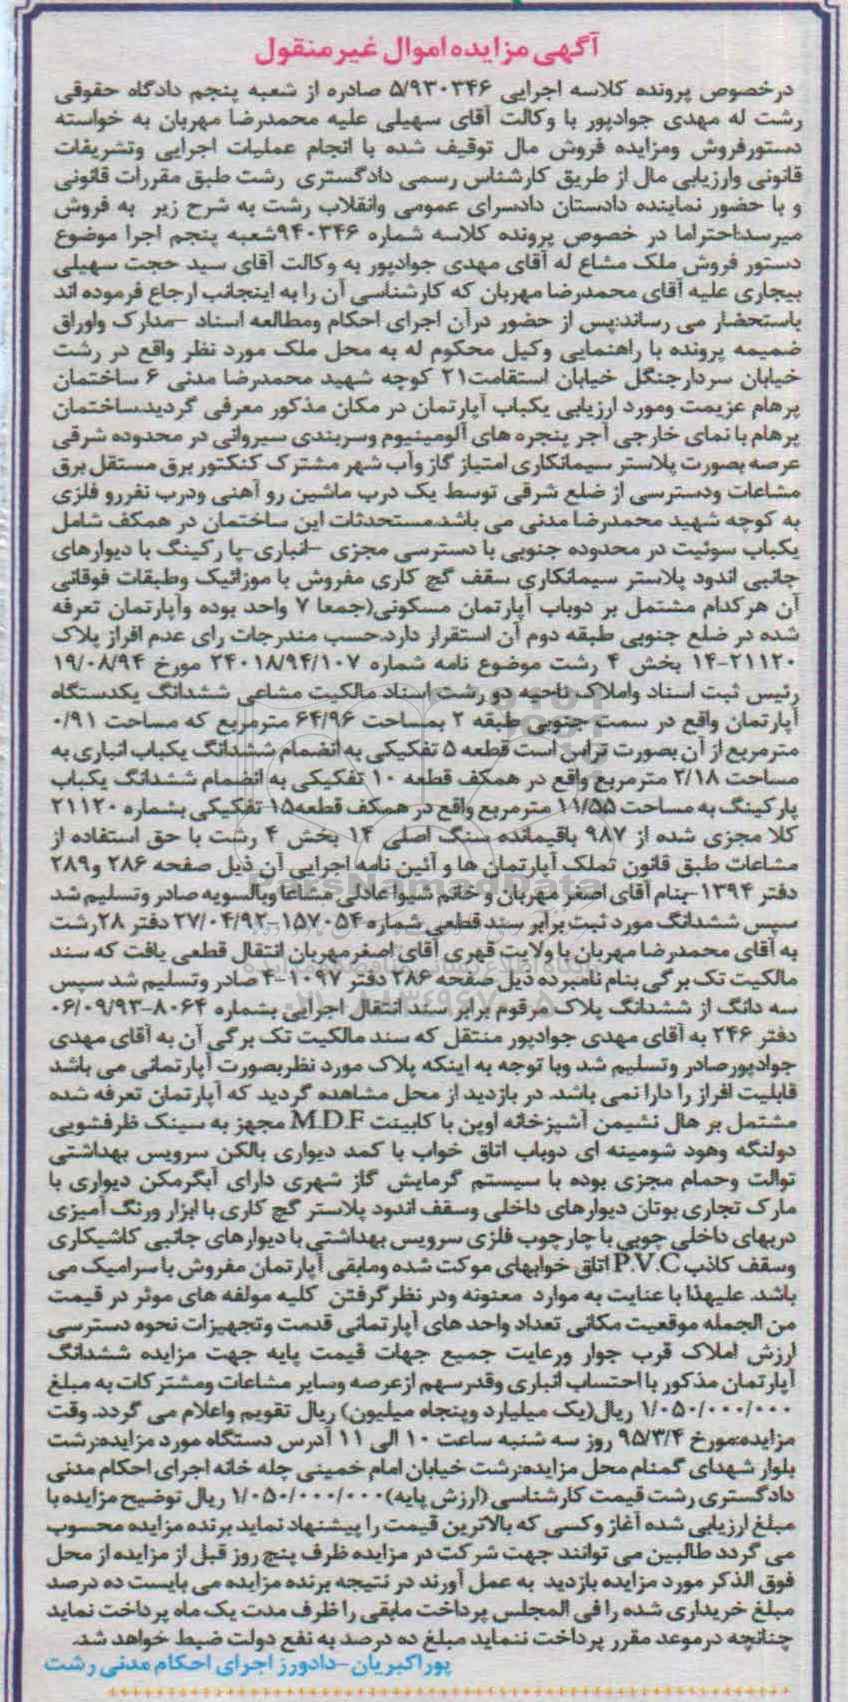 آگهی مزایده اموال غیر منقول
درخصوص پرونده کلاسه اجرایی ۵/۹۳۰۳۴۶ صادره از شعبه پنجم دادگاه حقوقی
رشت له مهدی جوادپور با وکالت آقای سهیلی علیه محمدرضا مهربان به خواسته
دستورفروش ومزایده فروش مال توقیف شده با انجام عملیات اجرایی وتشریفات
قانونی وارزیابی مال از طریق کارشناس رسمی دادگستری رشت طبق مقررات قانونی
و با حضور نماینده دادستان دادسرای عمومی وانقلاب رشت به شرح زیر به فروش
میرسد:احتراما در خصوص پرونده کلاسه شماره ۹۴۰۳۴۶شعبه پنجم اجرا موضوع
دستور فروش ملک مشاع له آقای مهدی جوادپور به وکالت آقای سید حجت سهیلی
بیجاری علیه آقای محمدرضا مهربان که کارشناسی آن را به اینجانب ارجاع فرموده اند
باستحضار می رساند:پس از حضور درآن اجرای احکام ومطالعه اسناد -مدارک واوراق
ضمیمه پرونده با راهنمایی وکیل محکوم له به محل ملک مورد نظر واقع در رشت
خیابان سردارجنگل خیابان استقامت۲۱ کوچه شهید محمدرضا مدنی ۶ ساختمان
پرهام عزیمت ومورد ارزیابی یکباب آپارتمان در مکان مذکور معرفی گردید.ساختمان
پرهام با نمای خارجی آجر پنجره های آلومینیوم وسربندی سیروانی در محدوده شرقی
عرصه بصورت پلاستر سیمانکاری امتیاز گاز وآب شهر مشترک کنکتور برق مستقل برق
مشاعات ودسترسی از ضلع شرقی توسط یک درب ماشین رو آهنی ودرب نفررو فلزی
به کوچه شهید محمدرضا مدنی می باشد.مستحدثات این ساختمان در همکف شامل
یکباب سوئیت در محدوده جنوبی با دسترسی مجزی -انباری-پارکینگ با دیوارهای
جانبی اندود پلاستر سیمانکاری سقف گچ کاری مفروش با موزائیک وطبقات فوقانی
آن هرکدام مشتمل بر دوباب آپارتمان مسکونی(جمعا ۷ واحد بوده وآپارتمان تعرفه
شده در ضلع جنوبی طبقه دوم آن استقرار دارد.حسب مندرجات رای عدم افراز پلاک
۱۴-۲۱۱۲۰ بخش ۴ رشت موضوع نامه شماره ۲۴۰۱۸/۹۴/۱۰۷ مورخ ۱۹/۰۸/۹۴
رئیس ثبت اسناد واملاک ناحیه دو رشت اسناد مالکیت مشاعی ششدانگ یکدستگاه
آپارتمان واقع در سمت جنوبی طبقه ۲ بمساحت ۶۴/۹۶ مترمربع که مساحت ۰/۹۱
مترمربع از آن بصورت تراس است قطعه ۵ تفکیکی به انضمام ششدانگ یکباب انباری به
مساحت ۲/۱۸ مترمربع واقع در همکف قطعه ۱۰ تفکیکی به انضمام ششدانگ یکباب
پارکینگ به مساحت ۱۱/۵۵ مترمربع واقع در همکف قطعه۱۵ تفکیکی بشماره ۲۱۱۲۰
کلا مجزی شده از ۹۸۷ باقیمانده سنگ اصلی ۱۴ بخش ۴ رشت با حق استفاده از
مشاعات طبق قانون تملک آپارتمان ها و آئین نامه اجرایی آن ذیل صفحه ۲۸۶ و۲۸۹
دفتر ۱۳۹۴-بنام آقای اصغر مهربان و خانم شیوا عادلی مشاعا وبالسویه صادر وتسلیم شد
سپس ششدانگ مورد ثبت برابر سند قطعی شماره ۱۵۷۰۵۴-۲۷/۰۴/۹۲ دفتر ۲۸رشت
به آقای محمدرضا مهربان با ولایت قهری آقای اصغرمهربان انتقال قطعی یافت که سند
مالکیت تک برگی بنام نامبرده ذیل صفحه ۲۸۶ دفتر ۱۰۹۷-۴ صادر وتسلیم شد سپس
سه دانگ از ششدانگ پلاک مرقوم برابر سند انتقال اجرایی بشماره ۸۰۶۴-۰۶/۰۹/۹۳
دفتر ۲۴۶ به آقای مهدی جوادپور منتقل که سند مالکیت تک برگی آن به آقای مهدی
جوادپورصادر وتسلیم شد وبا توجه به اینکه پلاک مورد نظربصورت آپارتمانی می باشد
قابلیت افراز را دارا نمی باشد. در بازدید از محل مشاهده گردید که آپارتمان تعرفه شده
مشتمل بر هال نشیمن آشپزخانه اوپن با کابینت M.D.F مجهز به سینک ظرفشویی
دولنگه وهود شومینه ای دوباب اتاق خواب با کمد دیواری بالکن سرویس بهداشتی
توالت وحمام مجزی بوده با سیستم گرمایش گاز شهری دارای آبگرمکن دیواری با
مارک تجاری بوتان دیوارهای داخلی وسقف اندود پلاستر گچ کاری با ابزار ورنگ آمیزی
دربهای داخلی چوبی با چارچوب فلزی سرویس بهداشتی با دیوارهای جانبی کاشیکاری
وسقف کاذب P.V.C اتاق خوابهای موکت شده ومابقی آپارتمان مفروش با سرامیک می
باشد. علیهذا با عنایت به موارد معنونه ودر نظرگرفتن کلیه مولفه های موثر در قیمت
من الجمله موقعیت مکانی تعداد واحد های آپارتمانی قدمت وتجهیزات نحوه دسترسی
ارزش املاک قرب جوار ورعایت جمیع جهات قیمت پایه جهت مزایده ششدانگ
آپارتمان مذکور با احتساب انباری وقدرسهم ازعرصه وسایر مشاعات ومشترکات به مبلغ
۱/۰۵۰/۰۰۰/۰۰۰ ریال(یک میلیارد وپنجاه میلیون) ریال تقویم واعلام می گردد. وقت
مزایده:مورخ ۹۵/۳/۴ روز سه شنبه ساعت ۱۰ الی ۱۱ آدرس دستگاه مورد مزایده:رشت
بلوار شهدای گمنام محل مزایده:رشت خیابان امام خمینی چله خانه اجرای احکام مدنی
دادگستری رشت قیمت کارشناسی (ارزش پایه)۱/۰۵۰/۰۰۰/۰۰۰ ریال توضیح مزایده با
مبلغ ارزیابی شده آغاز وکسی که بالاترین قیمت را پیشنهاد نماید برنده مزایده محسوب
می گردد طالبین می توانند جهت شرکت در مزایده ظرف پنج روز قبل از مزایده از محل
فوق الذکر مورد مزایده بازدید به عمل آورند در نتیجه برنده مزایده می بایست ده درصد
مبلغ خریداری شده را فی المجلس پرداخت مابقی را ظرف مدت یک ماه پرداخت نماید
چنانچه درموعد مقرر پرداخت ننماید مبلغ ده درصد به نفع دولت ضبط خواهد شد.
پوراکبریان-دادورز اجرای احکام مدنی رشت
ParsNamadData